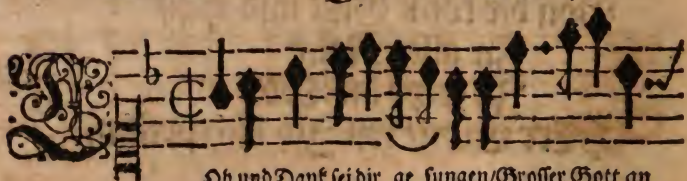 LOb und Dank sei dir ge sungen/Grosser Gott an